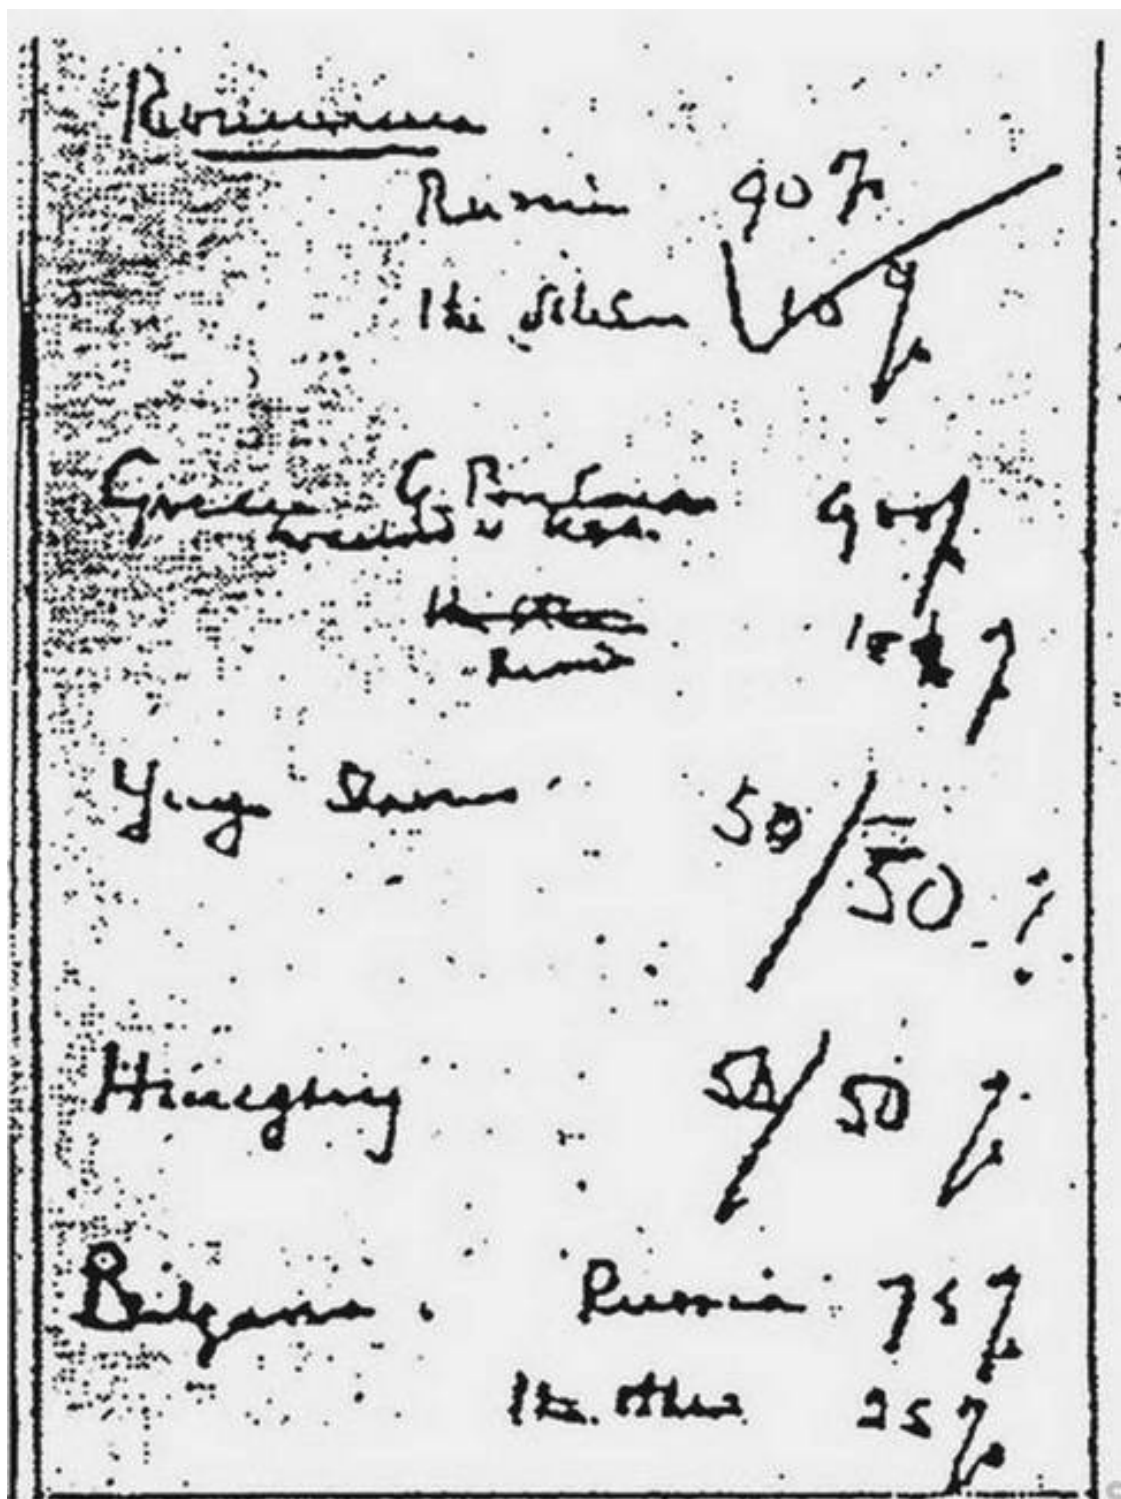 Roumania
Russia 90%
The others 10%
Greece G. Britain 90%
in accord w USA.
The others
Russia 10%
Yugo Slavia 50/50 %
Hungary 50/50 %
Bulgaria. Russia 75%
The others 25%